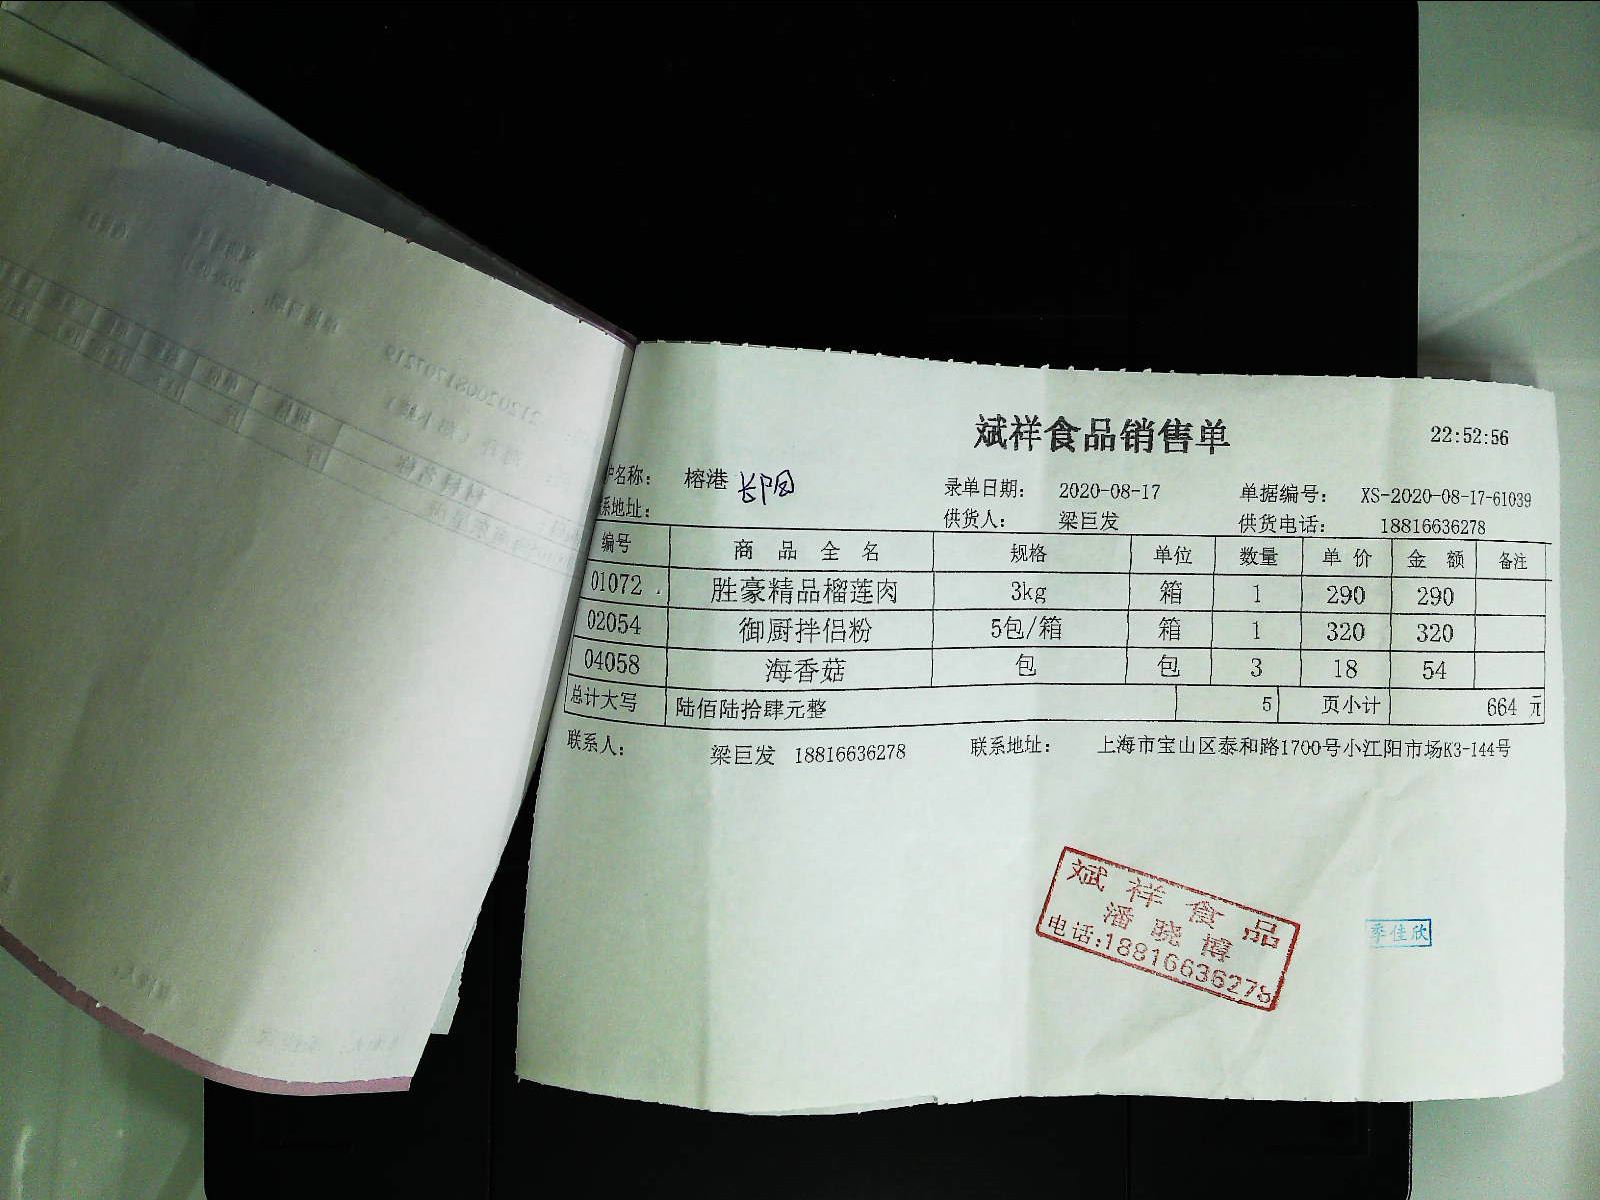 斌祥食品销售单
22:52:56
户名称： 榕港 长阳 录单日期： 2020-08-17 单据编号： XS-2020-08-17-61039
系地址： 供货人： 梁巨发 供货电话： 18816636278
编号 商品全名 规格 单位 数量 单价 金额 备注
01072 胜豪精品榴莲肉 3kg 箱 1 290 290
02054 御厨拌侣粉 5包/箱 箱 1 320 320
04058 海香菇 包 包 3 18 54
总计大写 陆佰陆拾肆元整 5 页小计 664 元
联系人： 梁巨发 18816636278 联系地址： 上海市宝山区泰和路1700号小江阳市场K3-144号
斌祥食品
潘晓博
电话:18816636278
季佳欣